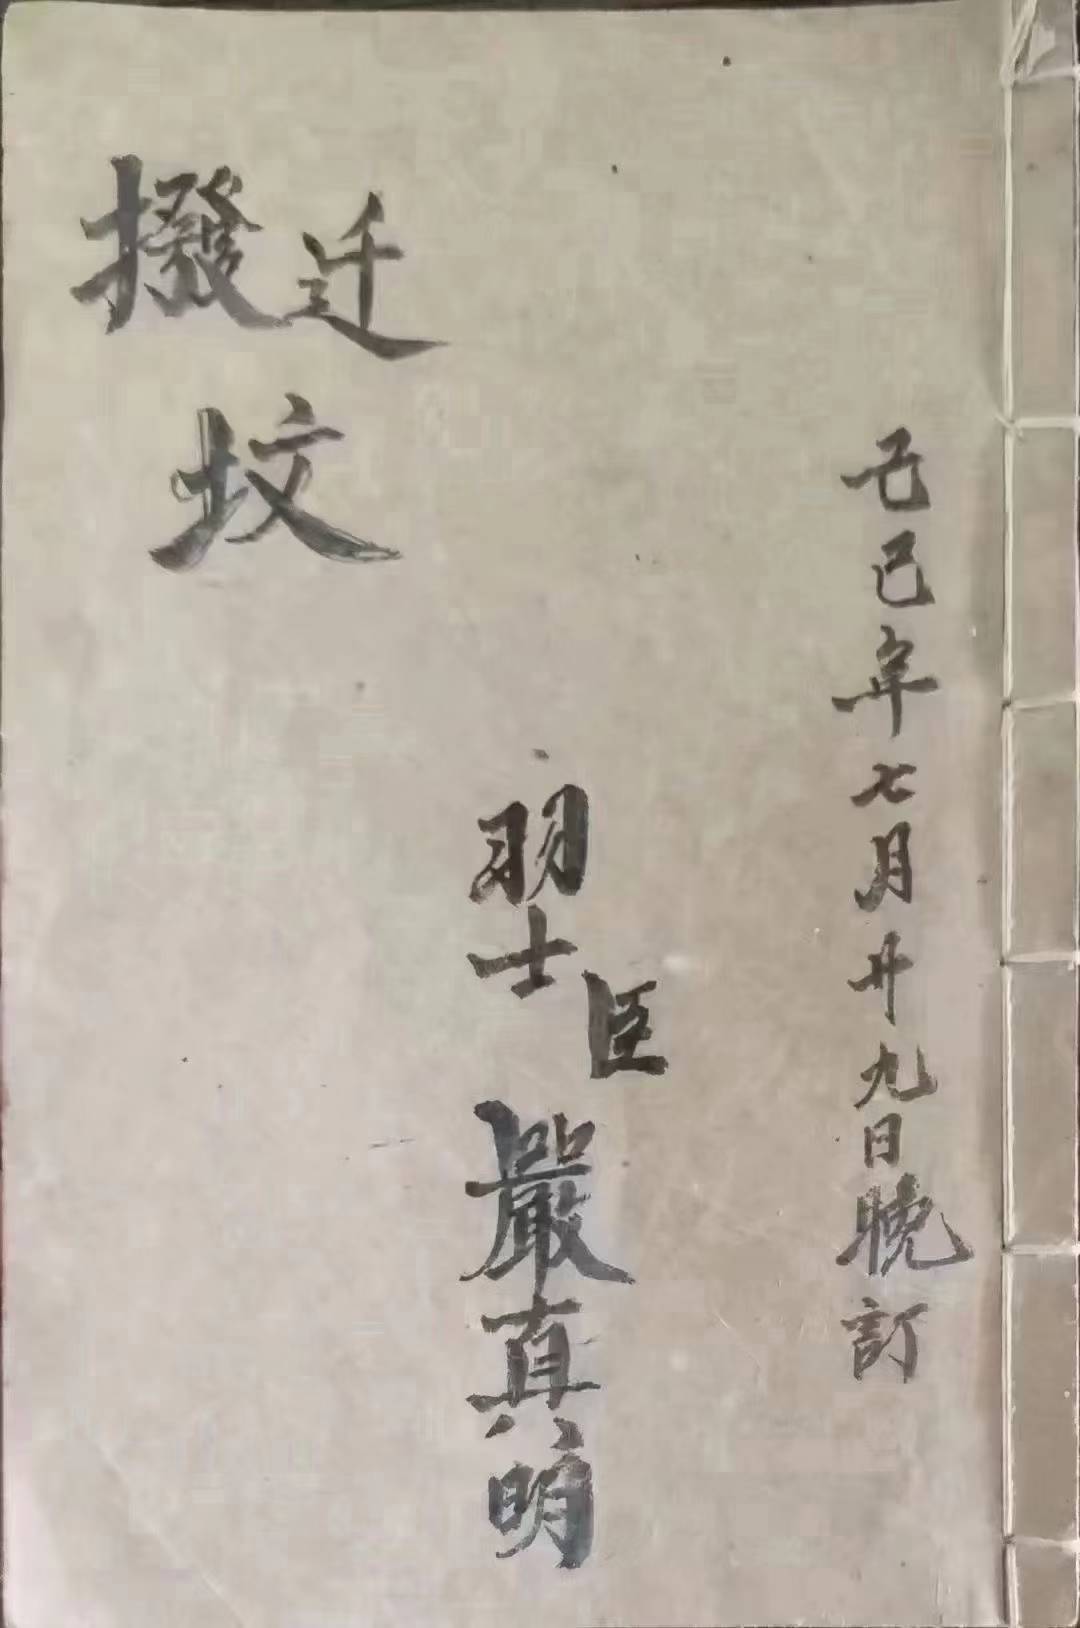 己巳年七月廿九日晚訂
羽士臣嚴真明
撥迁坟